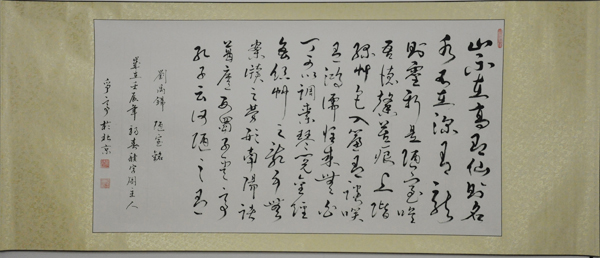 山不在高有仙則名
水不在深有龍
則靈斯是陋室唯
吾德馨苔痕上階
綠草色入簾青談笑
有鴻儒往來無白
丁可以調素琴閱金經
無絲竹之亂耳無
案牘之勞形南陽諸
葛廬西蜀子雲亭
孔子云何陋之有
劉禹錫 陋室銘
歲在壬辰年初春 主人
於北京